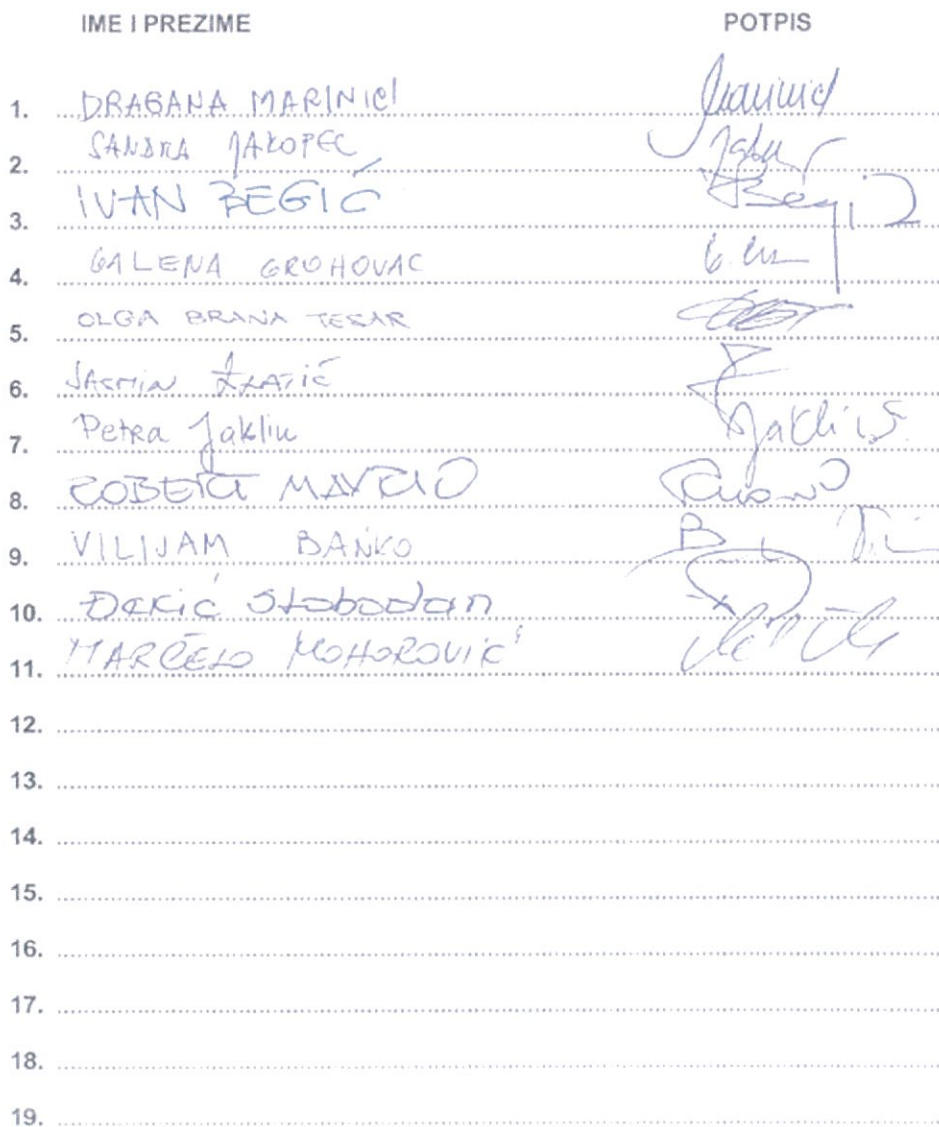 IME I PREZIME POTPIS
1. DRAGANA MARINIĆ
2. SANDRA JAKOPEC
3. IVAN BEGIĆ Begić
4. GALENA GROHOVAC
5. OLGA BRANA TESAR
6. JASMIN ZLATIĆ
7. Petra Jaklin Jaklin
8. ROBERT
9. VILIJAM BANKO
10. Đekić Slobodan
11. MARČELO MOHOROVIĆ
12.
13.
14.
15.
16.
17.
18.
19.